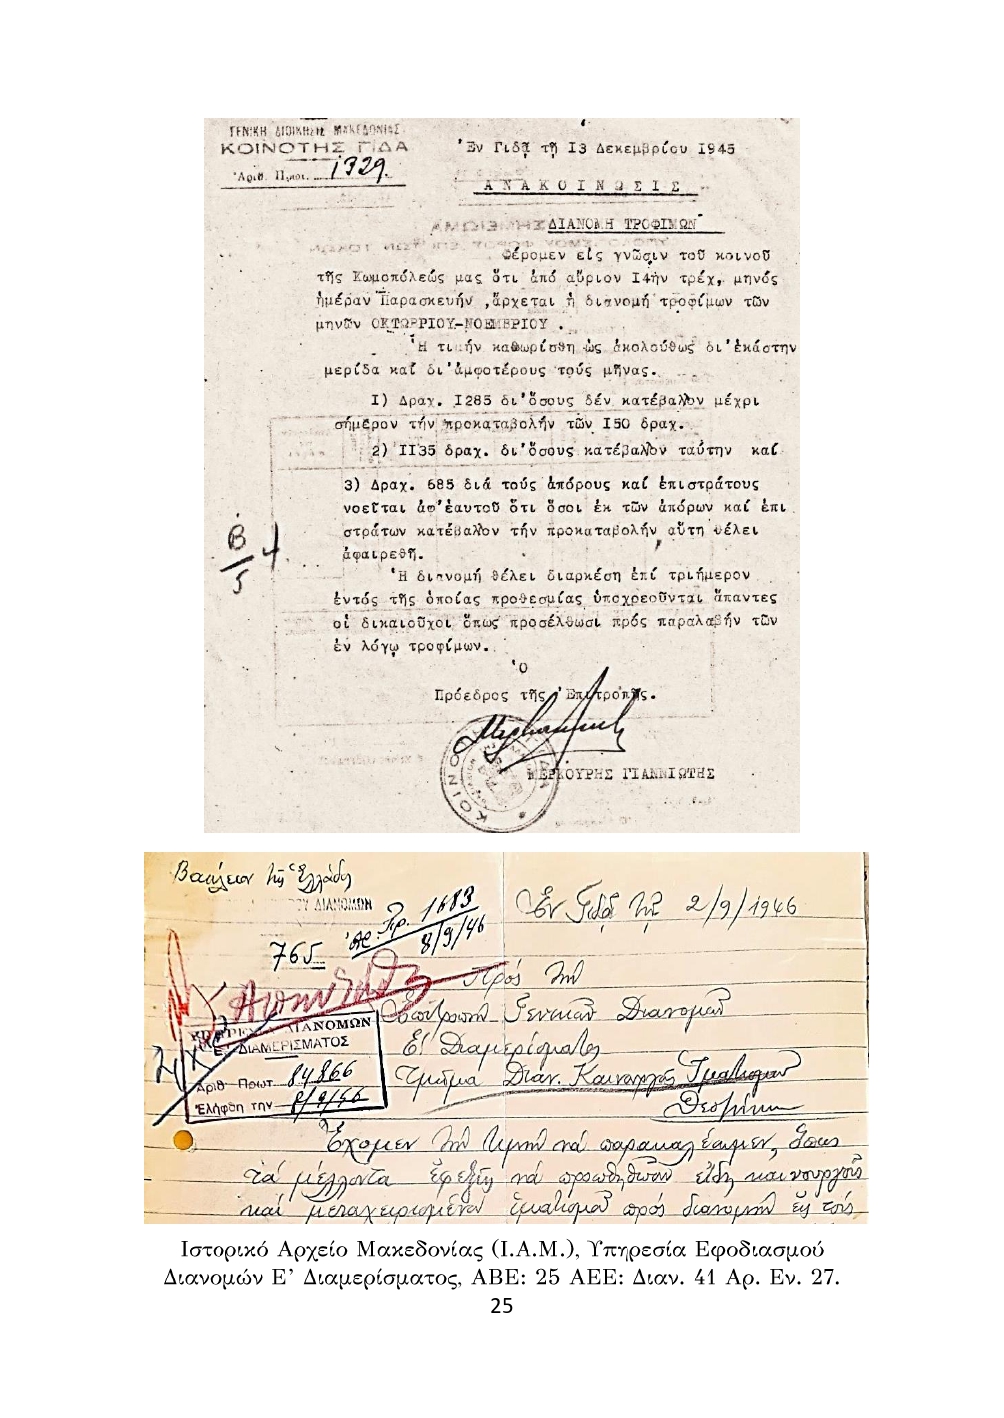 ΓΕΝΙΚΗ ΔΙΟΙΚΗΣΙΣ ΜΑΚΕΔΟΝΙΑΣ
ΚΟΙΝΟΤΗΣ ΓΙΔΑ
Ἀριθ. Πρωτ. 1329.
Ἐν Γιδᾷ τῇ 13 Δεκεμβρίου 1945
ΑΝΑΚΟΙΝΩΣΙΣ
ΔΙΑΝΟΜΗ ΤΡΟΦΙΜΩΝ
Φέρομεν εἰς γνῶσιν τοῦ κοινοῦ
τῆς Κωμοπόλεώς μας ὅτι ἀπό αὔριον 14ην τρέχ, μηνός
ἡμέραν Παρασκευήν ,ἄρχεται ἡ διανομή τροφίμων τῶν
μηνῶν ΟΚΤΩΒΡΙΟΥ-ΝΟΕΜΒΡΙΟΥ .
Ἡ τιμήν καθωρίσθη ὡς ἀκολούθως δι'ἑκάστην
μερίδα καί δι'ἀμφοτέρους τούς μῆνας.
1) Δραχ. 1285 δι'ὅσους δέν κατέβαλλον μέχρι
σήμερον τήν προκαταβολήν τῶν 150 δραχ.
2) 1135 δραχ. δι'ὅσους κατέβαλλον ταύτην καί
3) Δραχ. 685 διά τούς ἀπόρους καί ἐπιστράτους
νοεῖται ἀφ'ἑαυτοῦ ὅτι ὅσοι ἐκ τῶν ἀπόρων καί ἐπι
στράτων κατέβαλον τήν προκαταβολήν αὕτη θέλει
ἀφαιρεθῇ.
Β/5 4
Ἡ διανομή θέλει διαρκέση ἐπί τριήμερον
ἐντός τῆς ὁποίας προθεσμίας ὑποχρεοῦνται ἅπαντες
οἱ δικαιοῦχοι ὅπως προσέλθωσι πρός παραλαβήν τῶν
ἐν λόγῳ τροφίμων.
Ὁ
Πρόεδρος τῆς Ἐπιτροπῆς.
ΜΕΡΚΟΥΡΗΣ ΓΙΑΝΝΙΩΤΗΣ
Βασίλειον τῆς Ἑλλάδος
ΔΙΑΝΟΜΩΝ
Ἀρ. Πρ. 1683
8/9/46
765
Ἐν Γιδᾷ τῇ 2/9/1946
Πρός τήν
Ἐπιτροπήν Γενικῶν Διανομῶν
Ε' Διαμερίσματος
Τμῆμα Διαν. Καινουργοῦς Ἱματισμοῦ
Θεσ/νίκην
ΔΙΑΝΟΜΩΝ
Ε' ΔΙΑΜΕΡΙΣΜΑΤΟΣ
Ἀριθ. Πρωτ. 84866
Ἐλήφθη την 8/9/46
Ἔχομεν τήν τιμήν νά παρακαλέσωμεν, ὅπως
τά μέλλοντα ἐφεξῆς νά προωθηθῶσιν εἴδη καινουργοῦς
καί μεταχειρισμένου ἱματισμοῦ πρός διανομήν εἰς τούς
Ιστορικό Αρχείο Μακεδονίας (Ι.Α.Μ.), Υπηρεσία Εφοδιασμού
Διανομών Ε' Διαμερίσματος, ΑΒΕ: 25 ΑΕΕ: Διαν. 41 Αρ. Εν. 27.
25